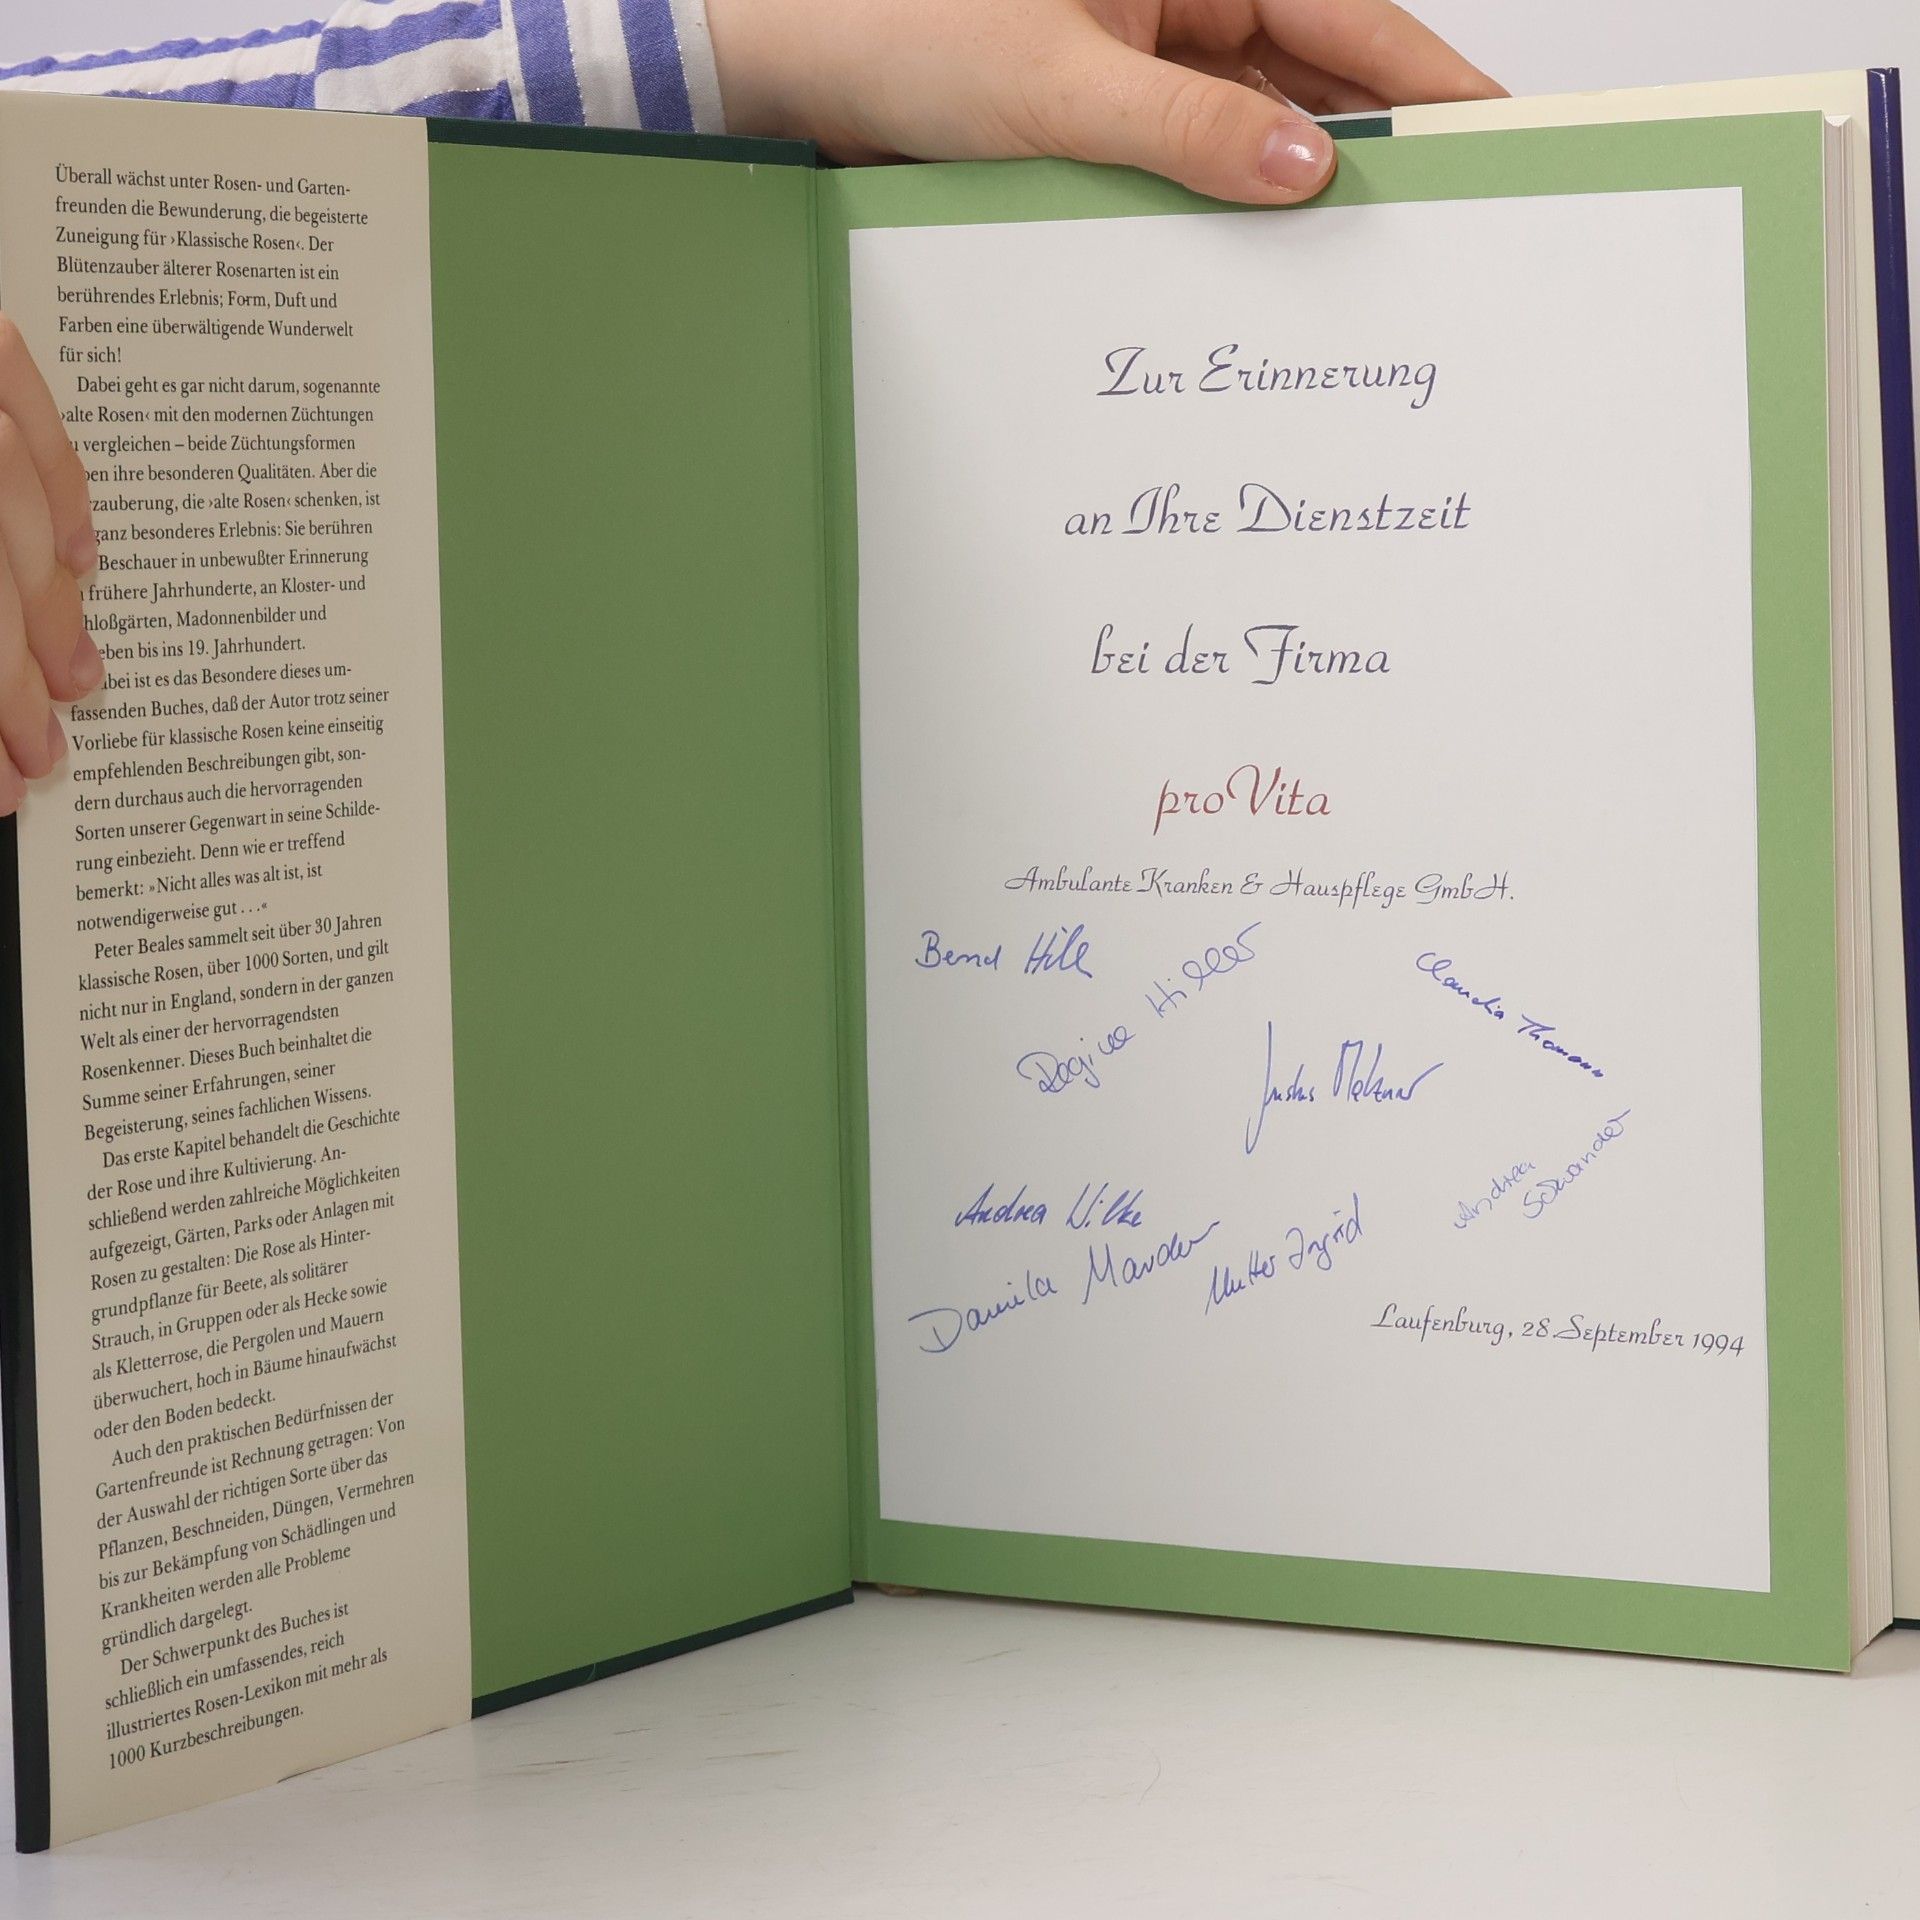 Überall wächst unter Rosen- und Garten-
freunden die Bewunderung, die begeisterte
Zuneigung für ›Klassische Rosen‹. Der
Blütenzauber älterer Rosenarten ist ein
berührendes Erlebnis; Form, Duft und
Farben eine überwältigende Wunderwelt
für sich!
Dabei geht es gar nicht darum, sogenannte
›alte Rosen‹ mit den modernen Züchtungen
vergleichen – beide Züchtungsformen
ihre besonderen Qualitäten. Aber die
rzauberung, die ›alte Rosen‹ schenken, ist
ganz besonderes Erlebnis: Sie berühren
Beschauer in unbewußter Erinnerung
frühere Jahrhunderte, an Kloster- und
hloßgärten, Madonnenbilder und
eben bis ins 19. Jahrhundert.
bei ist es das Besondere dieses um-
fassenden Buches, daß der Autor trotz seiner
Vorliebe für klassische Rosen keine einseitig
empfehlenden Beschreibungen gibt, son-
dern durchaus auch die hervorragenden
Sorten unserer Gegenwart in seine Schilde-
rung einbezieht. Denn wie er treffend
bemerkt: »Nicht alles was alt ist, ist
notwendigerweise gut . . .«
Peter Beales sammelt seit über 30 Jahren
klassische Rosen, über 1000 Sorten, und gilt
nicht nur in England, sondern in der ganzen
Welt als einer der hervorragendsten
Rosenkenner. Dieses Buch beinhaltet die
Summe seiner Erfahrungen, seiner
Begeisterung, seines fachlichen Wissens.
Das erste Kapitel behandelt die Geschichte
der Rose und ihre Kultivierung. An-
schließend werden zahlreiche Möglichkeiten
aufgezeigt, Gärten, Parks oder Anlagen mit
Rosen zu gestalten: Die Rose als Hinter-
grundpflanze für Beete, als solitärer
Strauch, in Gruppen oder als Hecke sowie
als Kletterrose, die Pergolen und Mauern
überwuchert, hoch in Bäume hinaufwächst
oder den Boden bedeckt.
Auch den praktischen Bedürfnissen der
Gartenfreunde ist Rechnung getragen: Von
der Auswahl der richtigen Sorte über das
Pflanzen, Beschneiden, Düngen, Vermehren
bis zur Bekämpfung von Schädlingen und
Krankheiten werden alle Probleme
gründlich dargelegt.
Der Schwerpunkt des Buches ist
schließlich ein umfassendes, reich
illustriertes Rosen-Lexikon mit mehr als
1000 Kurzbeschreibungen.
Zur Erinnerung
an Ihre Dienstzeit
bei der Firma
pro Vita
Ambulante Kranken & Hauspflege GmbH.
Bernd Hill
Regina Hiller
Claudia Thomann
Justus Melzner
Andrea Wilke
Andrea
Schwander
Daniela Marder
Mutter Ingrid
Laufenburg, 28. September 1994